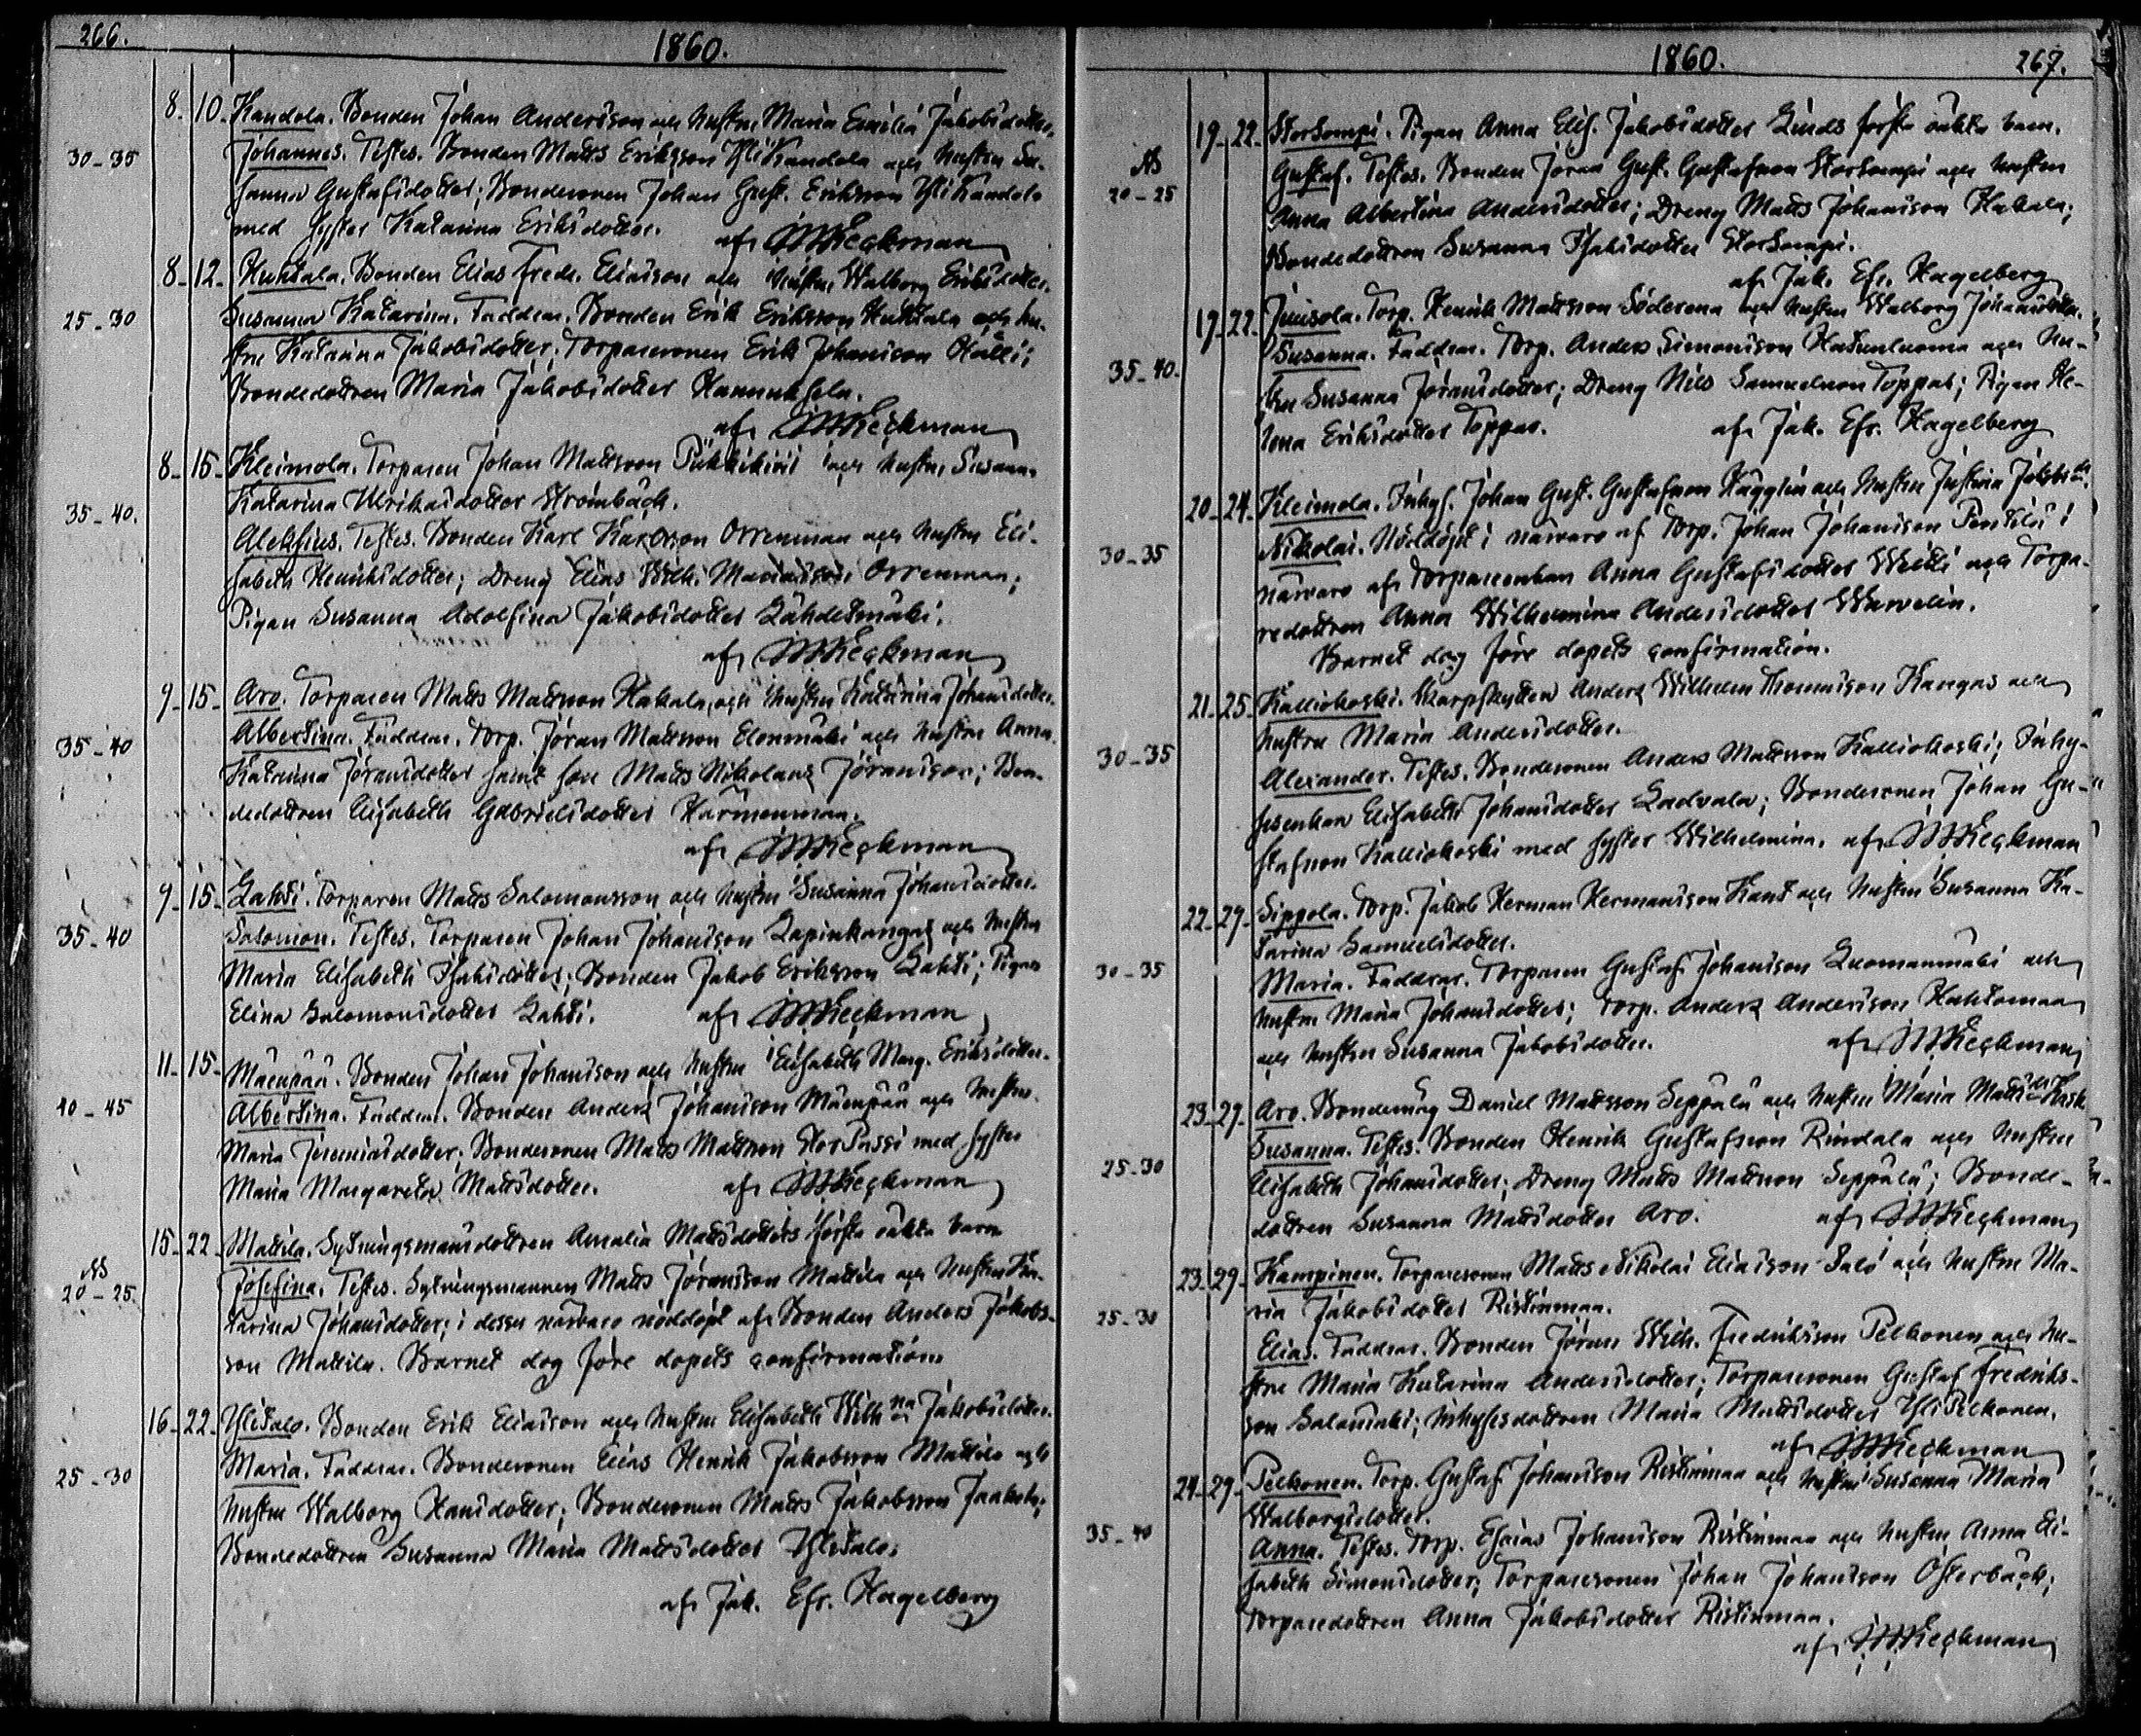 266.
1860.
8. 10. Kandola. Bonden Johan Andersson och hustru Maria Emilia Jakobsdotter.
30-35 Johannes. Testes. Bonden Matts Eriksson Yli Kandola och hustru Su-
sanna Gustafsdotter; Bondesonen Johan Gust. Eriksson Yli Kandola
med syster Katarina Eriksdotter. af
8. 12. Huhtala. Bonden Elias Fredr. Eliasson och hustru Walborg Eriksdotter.
25-30 Susanna Katarina. Faddrar. Bonden Erik Eriksson Huhtala och hu-
stru Katarina Jakobsdotter; Torparesonen Erik Johansson Halli;
Bondedottren Maria Jakobsdotter Hannuksela.
af
8-15- Kleimola. Torparen Johan Mattsson och hustru Susanna
35-40. Katarina Ulrikasdotter Strömbäck.
Alexius. Testes. Bonden Karl Karlsson Orrenmaa och hustru Eli-
sabeth Henriksdotter; Dreng Elias Wilh. Orrenmaa;
Pigan Susanna Adolfina Jakobsdotter Lähdetmäki.
af
9-15- Aro. Torparen Matts Mattsson Hakala, och hustru Katarina Johansdotter.
35-40 Albertina. Faddrar. Torp. Jöran Mattsson Elonmäki och hustru Anna
Katarina Jöransdotter samt son Matts Nikolaus Jöransson; Bon-
dedottren Elisabeth Gabrielsdotter Harmenmaa.
af
9-15- Lahti. Torparen Matts Salomonsson och hustru Susanna Johansdotter.
35-40 Salomon. Testes. Torparen Johan Johansson Lapinkangas och hustru
Maria Elisabeth Isaksdotter; Bonden Jakob Eriksson Lahti; Pigan
Elina Salomonsdotter Lahti. af
11-15- Mäenpää. Bonden Johan Johansson och hustru Elisabeth Marg. Eriksdotter.
40-45 Albertina. Faddrar. Bonden Anders Johansson Mäenpää och hustru
Maria Jeremiasdotter; Bondesonen Matts Mattsson Stor Passi med syster
Maria Margareta Mattsdotter. af
15-22- Mattila. Sytningsmansdottren Amalia Mattsdotters första oäkta barn
20-25. Josefina. Testes. Sytningsmannen Matts Jöransson Mattila och hustru Ka-
tarina Johansdotter; i dessas närvaro nöddöpt af Bonden Anders Jakobs-
son Mattila. Barnet dog före dopets confirmation.
16-22- Ylitalo. Bonden Erik Eliasson och hustru Elisabeth Wilhna Jakobsdotter.
25-30 Maria. Faddrar. Bondesonen Elias Henrik Jakobsson Mattila och
hustru Walborg Hansdotter; Bondesonen Matts Jakobsson Jaakola;
Bondedottren Susanna Maria Mattsdotter Ylitalo.
af Jak. Efr. Hagelberg
1860. 267.
19-22- Storkomppi. Pigan Anna Elis. Jakobsdotter Linds första oäkta barn.
20-25 Gustaf. Testes. Bonden Jöran Gust. Gustafsson Storkomppi och hustru
Anna Albertina Andersdotter; Dreng Matts Johansson Hakala;
Bondedottren Susanna Isaksdotter Storkomppi.
af Jak. Efr. Hagelberg
19-22- Torp. Henrik Mattsson och hustru Walborg Johansdotter.
35-40. Susanna. Faddrar. Torp. Anders Simonsson och hu-
stru Susanna Jöransdotter; Dreng Nils Samuelsson Toppar; Pigan He-
lena Eriksdotter Toppar. af Jak. Efr. Hagelberg
20-24- Kleimola. Inhys. Johan Gust. Gustafsson Hägglin och hustru Justina Jakobsdr.
30-35 Nikolai. Nöddöpt i närvaro af Torp. Johan Johansson Penttilä i
närvaro af Torpareenkan Anna Gustafsdotter och Torpa-
redottren Anna Wilhelmina Andersdotter
Barnet dog före dopets confirmation.
21-25- Kalliokoski. Skarpskytten Anders Wilhelm Thomasson Kangas och
hustru Maria Andersdotter.
30-35 Alexander. Testes. Bondesonen Anders Mattsson Kalliokoski; Inhy-
sesenkan Elisabeth Johansdotter Ladvala; Bondesonen Johan Gu-
stafsson Kalliokoski med syster Wilhelmina. af
22-29- Sippola. Torp. Jakob Herman Hermansson Kant och hustru Susanna Ka-
tarina Samuelsdotter.
30-35 Maria. Faddrar. Torparen Gustaf Johansson Luomanmäki och
hustru Maria Johansdotter; Torp. Anders Andersson
och hustru Susanna Jakobsdotter. af
23-29- Aro. Bondemåg Daniel Mattsson Seppälä och hustru Maria Mattsdr
25-30 Susanna. Testes. Bonden Henrik Gustafsson Rindala och hustru
Elisabeth Johansdotter; Dreng Matts Mattsson Seppälä; Bonde-
dottren Susanna Mattsdotter Aro. af
23-29- Kampinen. Torparesonen Matts Nikolai Eliasson Salo och hustru Ma-
ria Jakobsdotter Ristinmaa.
25-30 Elias. Faddrar. Bonden Jöran Wilh. Fredriksson Pelkonen och hu-
stru Maria Katarina Andersdotter; Torparesonen Gustaf Fredriks-
son Salomäki; Inhysesdottren Maria Mattsdotter Yli Pelkonen.
af
24-29- Pelkonen. Torp. Gustaf Johansson Ristinmaa och hustru Susanna Maria
Walborgsdotter.
35-40 Anna. Testes. Torp. Esaias Johansson Ristinmaa och hustru Anna Eli-
sabeth Simonsdotter; Torparesonen Johan Johansson Österback;
Torparedottren Anna Jakobsdotter Ristinmaa.
af